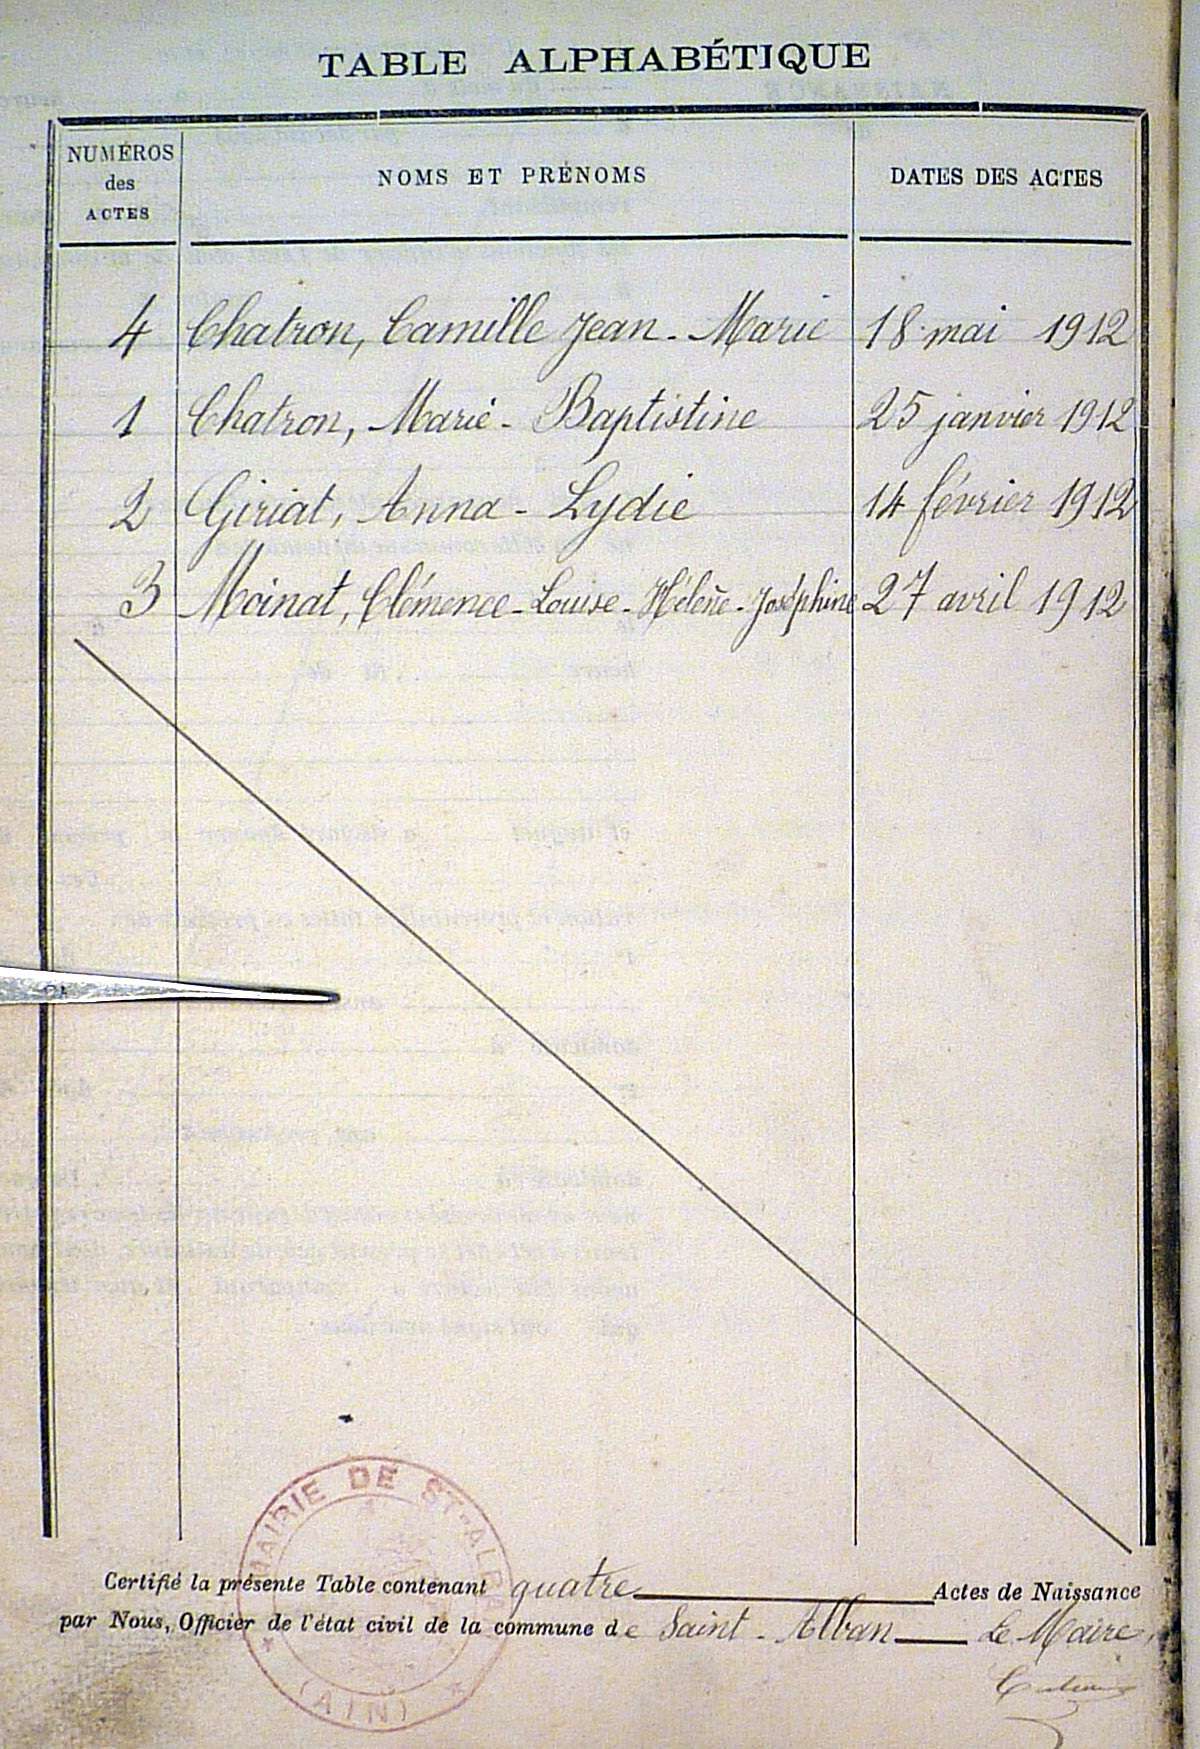 TABLE ALPHABÉTIQUE
NUMÉROS des ACTES NOMS ET PRÉNOMS DATES DES ACTES
4 Chatron, Camille Jean-Marie 18 mai 1912
1 Chatron, Marie-Baptistine 25 janvier 1912
2 Giriat, Anna-Lydie 14 février 1912
3 Moinat, Clémence-Louise-Hélène-Joséphine 27 avril 1912
MAIRIE DE ST-ALB
Certifié la présente Table contenant quatre Actes de Naissance
par Nous, Officier de l'état civil de la commune de Saint-Alban Le Maire,
(AIN)